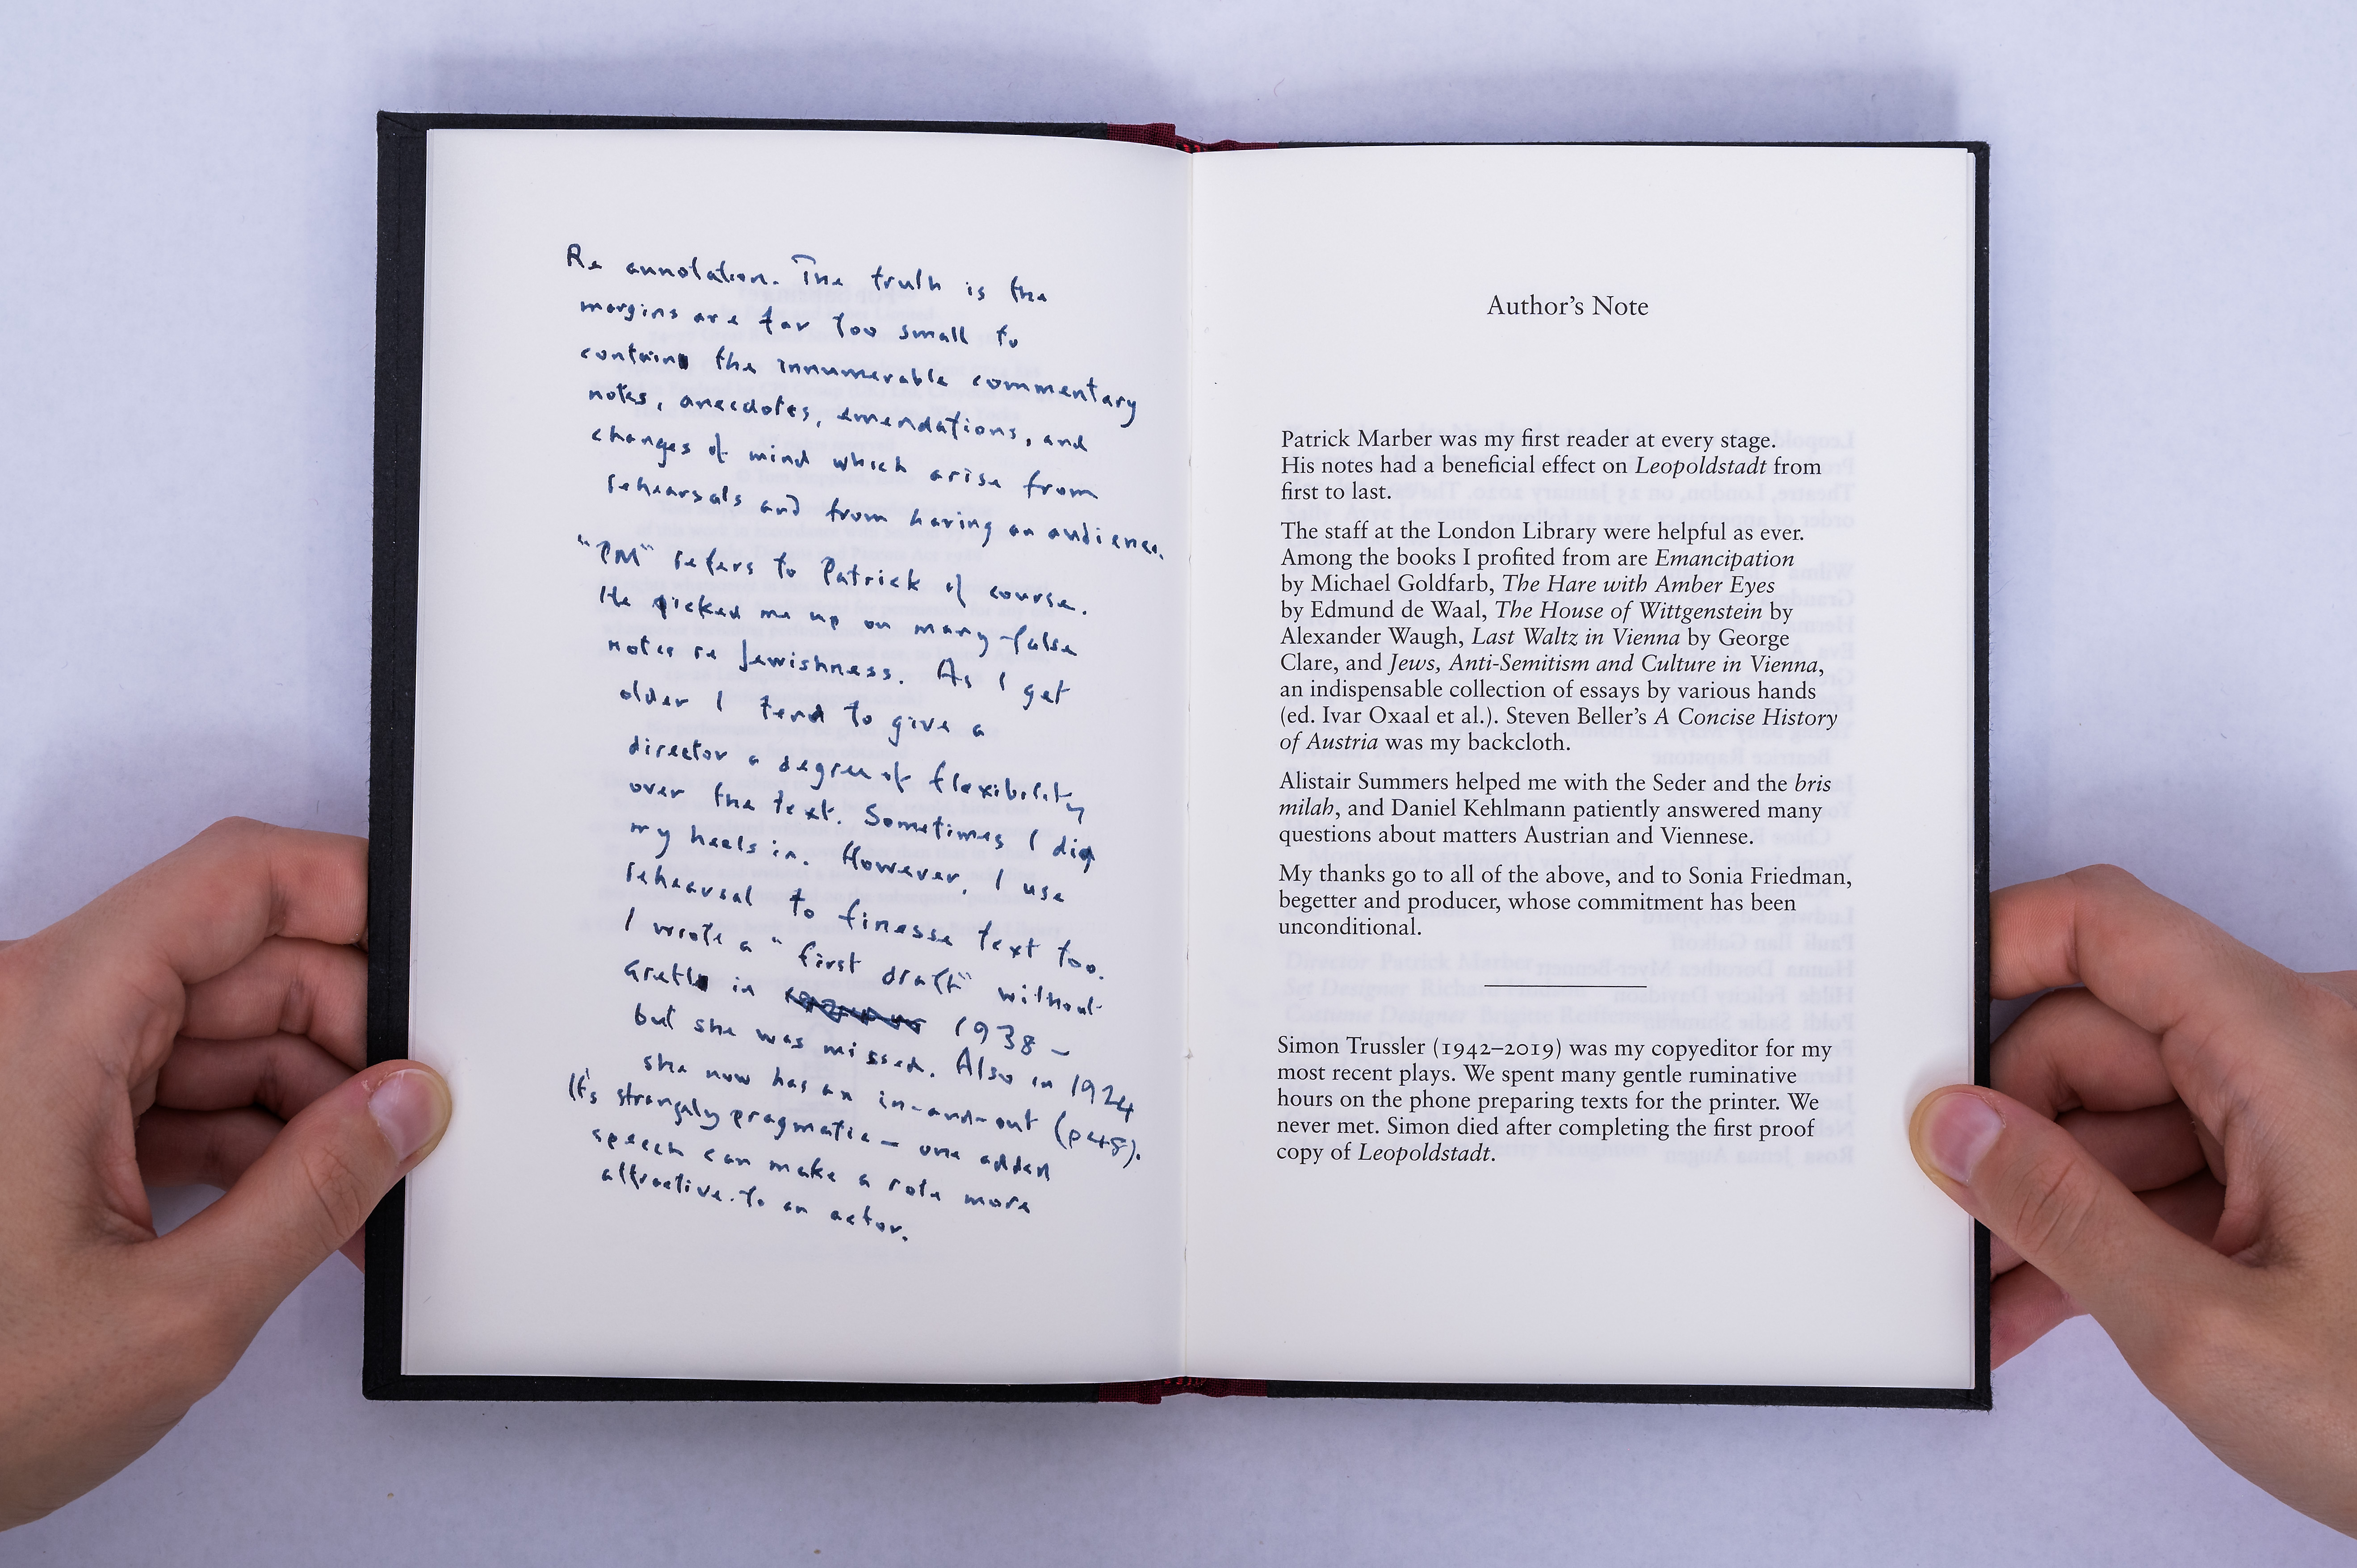 Re annotation. The truth is the
margins are far too small to
contain the innumerable commentary
notes, anecdotes, emendations, and
changes of mind which arise from
rehearsals and from having an audience.
"PM" refers to Patrick of course.
He picked me up on many false
notes re Jewishness. As I get
older I tend to give a
director a degree of flexibility
over the text. Sometimes I dig
my heels in. However, I use
rehearsal to finesse text too.
I wrote a "first draft" without
Gretl in 1938 –
but she was missed. Also in 1924
she now has an in-and-out (p48).
It's strangely pragmatic – one added
speech can make a role more
attractive to an actor.
Author's Note
Patrick Marber was my first reader at every stage.
His notes had a beneficial effect on Leopoldstadt from
first to last.
The staff at the London Library were helpful as ever.
Among the books I profited from are Emancipation
by Michael Goldfarb, The Hare with Amber Eyes
by Edmund de Waal, The House of Wittgenstein by
Alexander Waugh, Last Waltz in Vienna by George
Clare, and Jews, Anti-Semitism and Culture in Vienna,
an indispensable collection of essays by various hands
(ed. Ivar Oxaal et al.). Steven Beller's A Concise History
of Austria was my backcloth.
Alistair Summers helped me with the Seder and the bris
milah, and Daniel Kehlmann patiently answered many
questions about matters Austrian and Viennese.
My thanks go to all of the above, and to Sonia Friedman,
begetter and producer, whose commitment has been
unconditional.
Simon Trussler (1942–2019) was my copyeditor for my
most recent plays. We spent many gentle ruminative
hours on the phone preparing texts for the printer. We
never met. Simon died after completing the first proof
copy of Leopoldstadt.